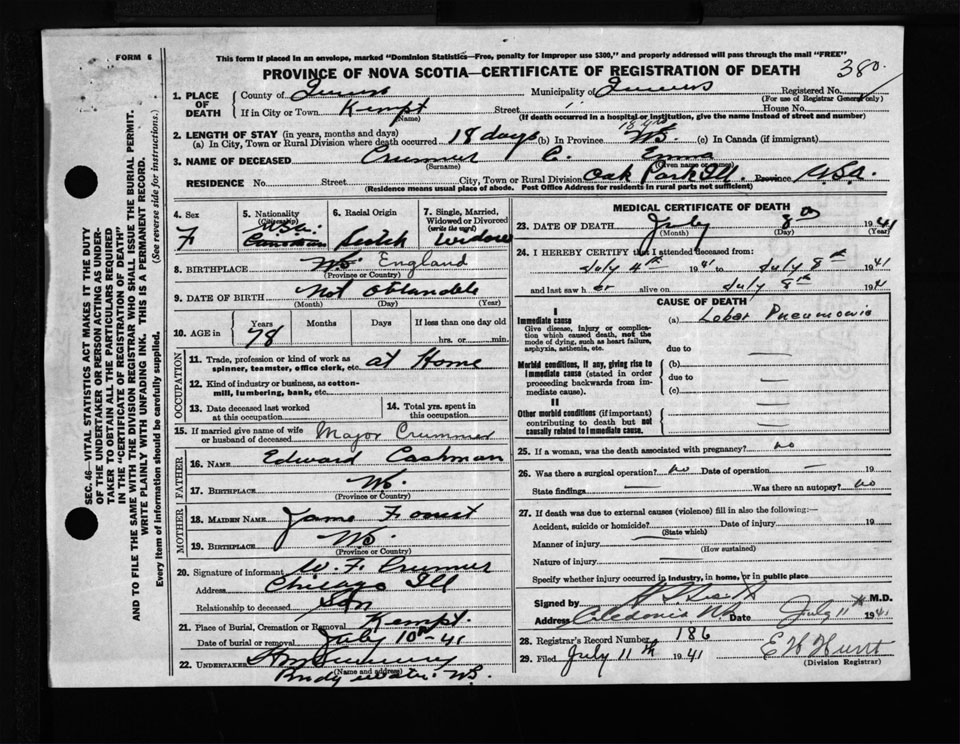 FORM 6
This form if placed in an envelope, marked "Dominion Statistics—Free, penalty for improper use $300," and properly addressed will pass through the mail "FREE"
PROVINCE OF NOVA SCOTIA—CERTIFICATE OF REGISTRATION OF DEATH
380
1. PLACE OF DEATH
County of Queens Municipality of Queens Registered No.
(For use of Registrar General only)
If in City or Town Kempt Street " House No.
(Name) (If death occurred in a hospital or institution, give the name instead of street and number)
2. LENGTH OF STAY (in years, months and days)
(a) In City, Town or Rural Division where death occurred 18 days (b) In Province (c) In Canada (if immigrant)
3. NAME OF DECEASED Crummer C. Emma
(Surname) (Given name or names)
RESIDENCE No. Street City, Town or Rural Division Oak Park Ill. Province U.S.A.
(Residence means usual place of abode. Post Office Address for residents in rural parts not sufficient)
4. Sex
F
5. Nationality
(Citizenship)
U.S.A.
Canadian
6. Racial Origin
7. Single, Married, Widowed or Divorced
(write the word)
Widow
8. BIRTHPLACE N.S. England
(Province or Country)
9. DATE OF BIRTH Not Obtainable
(Month) (Day) (Year)
10. AGE in
Years Months Days If less than one day old
78 hrs. or min.
OCCUPATION
11. Trade, profession or kind of work as spinner, teamster, office clerk, etc. at Home
12. Kind of industry or business, as cotton-mill, lumbering, bank, etc.
13. Date deceased last worked at this occupation
14. Total yrs. spent in this occupation
15. If married give name of wife or husband of deceased Major Crummer
FATHER
16. NAME Edward Cashman
17. BIRTHPLACE N.S.
(Province or Country)
MOTHER
18. MAIDEN NAME
19. BIRTHPLACE N.S.
(Province or Country)
20. Signature of informant W. F. Crummer
Address Chicago Ill
Relationship to deceased Son
21. Place of Burial, Cremation or Removal Kempt.
Date of burial or removal July 10th-41
22. UNDERTAKER
(Name and address)
Bridgewater N.S.
MEDICAL CERTIFICATE OF DEATH
23. DATE OF DEATH July 8th 1941
(Month) (Day) (Year)
24. I HEREBY CERTIFY that I attended deceased from:
July 4th 1941 to July 8th 1941
and last saw her alive on July 8th 1941
CAUSE OF DEATH
I
Immediate cause
Give disease, injury or complication which caused death, not the mode of dying, such as heart failure, asphyxia, asthenia, etc.
(a) Lobar Pneumonia
due to
Morbid conditions, if any, giving rise to immediate cause (stated in order proceeding backwards from immediate cause).
(b)
due to
(c)
II
Other morbid conditions (if important) contributing to death but not causally related to immediate cause.
25. If a woman, was the death associated with pregnancy? no
26. Was there a surgical operation? no Date of operation — 19
State findings — Was there an autopsy? no
27. If death was due to external causes (violence) fill in also the following:—
Accident, suicide or homicide? Date of injury 19
(State which)
Manner of injury
(How sustained)
Nature of injury
Specify whether injury occurred in industry, in home, or in public place
Signed by M.D.
Address Date July 11th 1941
28. Registrar's Record Number 186
29. Filed July 11th 1941 E H Hunt
(Division Registrar)
SEC. 46—VITAL STATISTICS ACT MAKES IT THE DUTY OF THE UNDERTAKER OR PERSON ACTING AS UNDERTAKER TO OBTAIN ALL THE PARTICULARS REQUIRED IN THE "CERTIFICATE OF REGISTRATION OF DEATH" AND TO FILE THE SAME WITH THE DIVISION REGISTRAR WHO SHALL ISSUE THE BURIAL PERMIT.
WRITE PLAINLY WITH UNFADING INK. THIS IS A PERMANENT RECORD.
Every item of information should be carefully supplied. (See reverse side for instructions.)